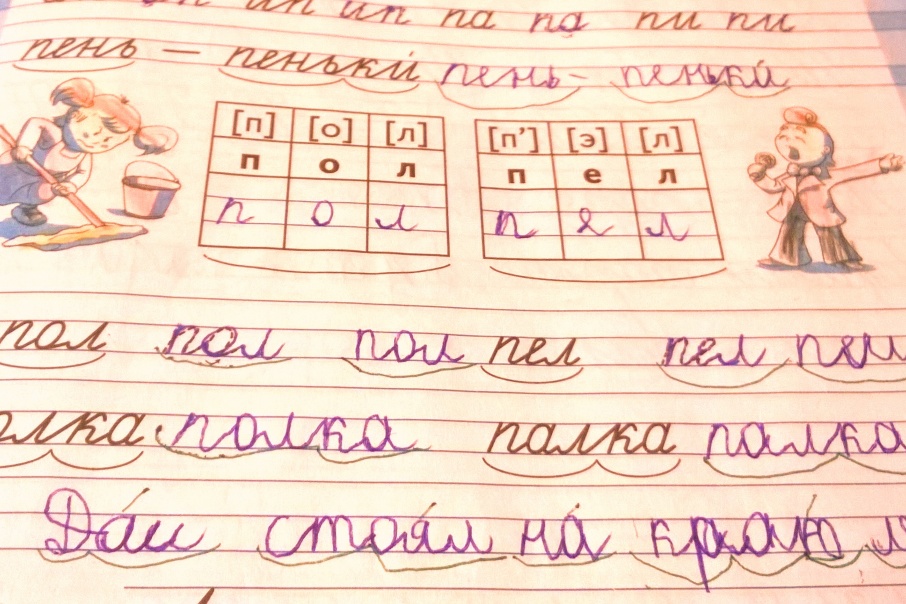 ип ип па па пи пи
пень — пеньки пень- пеньки
[п] [о] [л] [п’] [э] [л]
п о л п е л
п о л п е л
пол пол пол пел пел
палка палка палка
стоял на краю